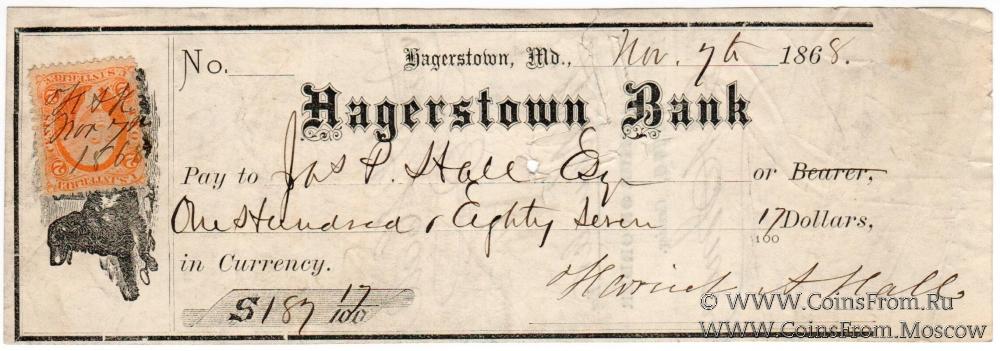 No. Hagerstown, Md., Nov. 7th 1868.
Hagerstown Bank
Pay to Jas P. Hall Esqr or Bearer,
One Hundred & Eighty Seven 17/100 Dollars,
in Currency.
$187 17/100
A Hall
Nov 7th
186
© WWW.CoinsFrom.Ru
WWW.CoinsFrom.Moscow